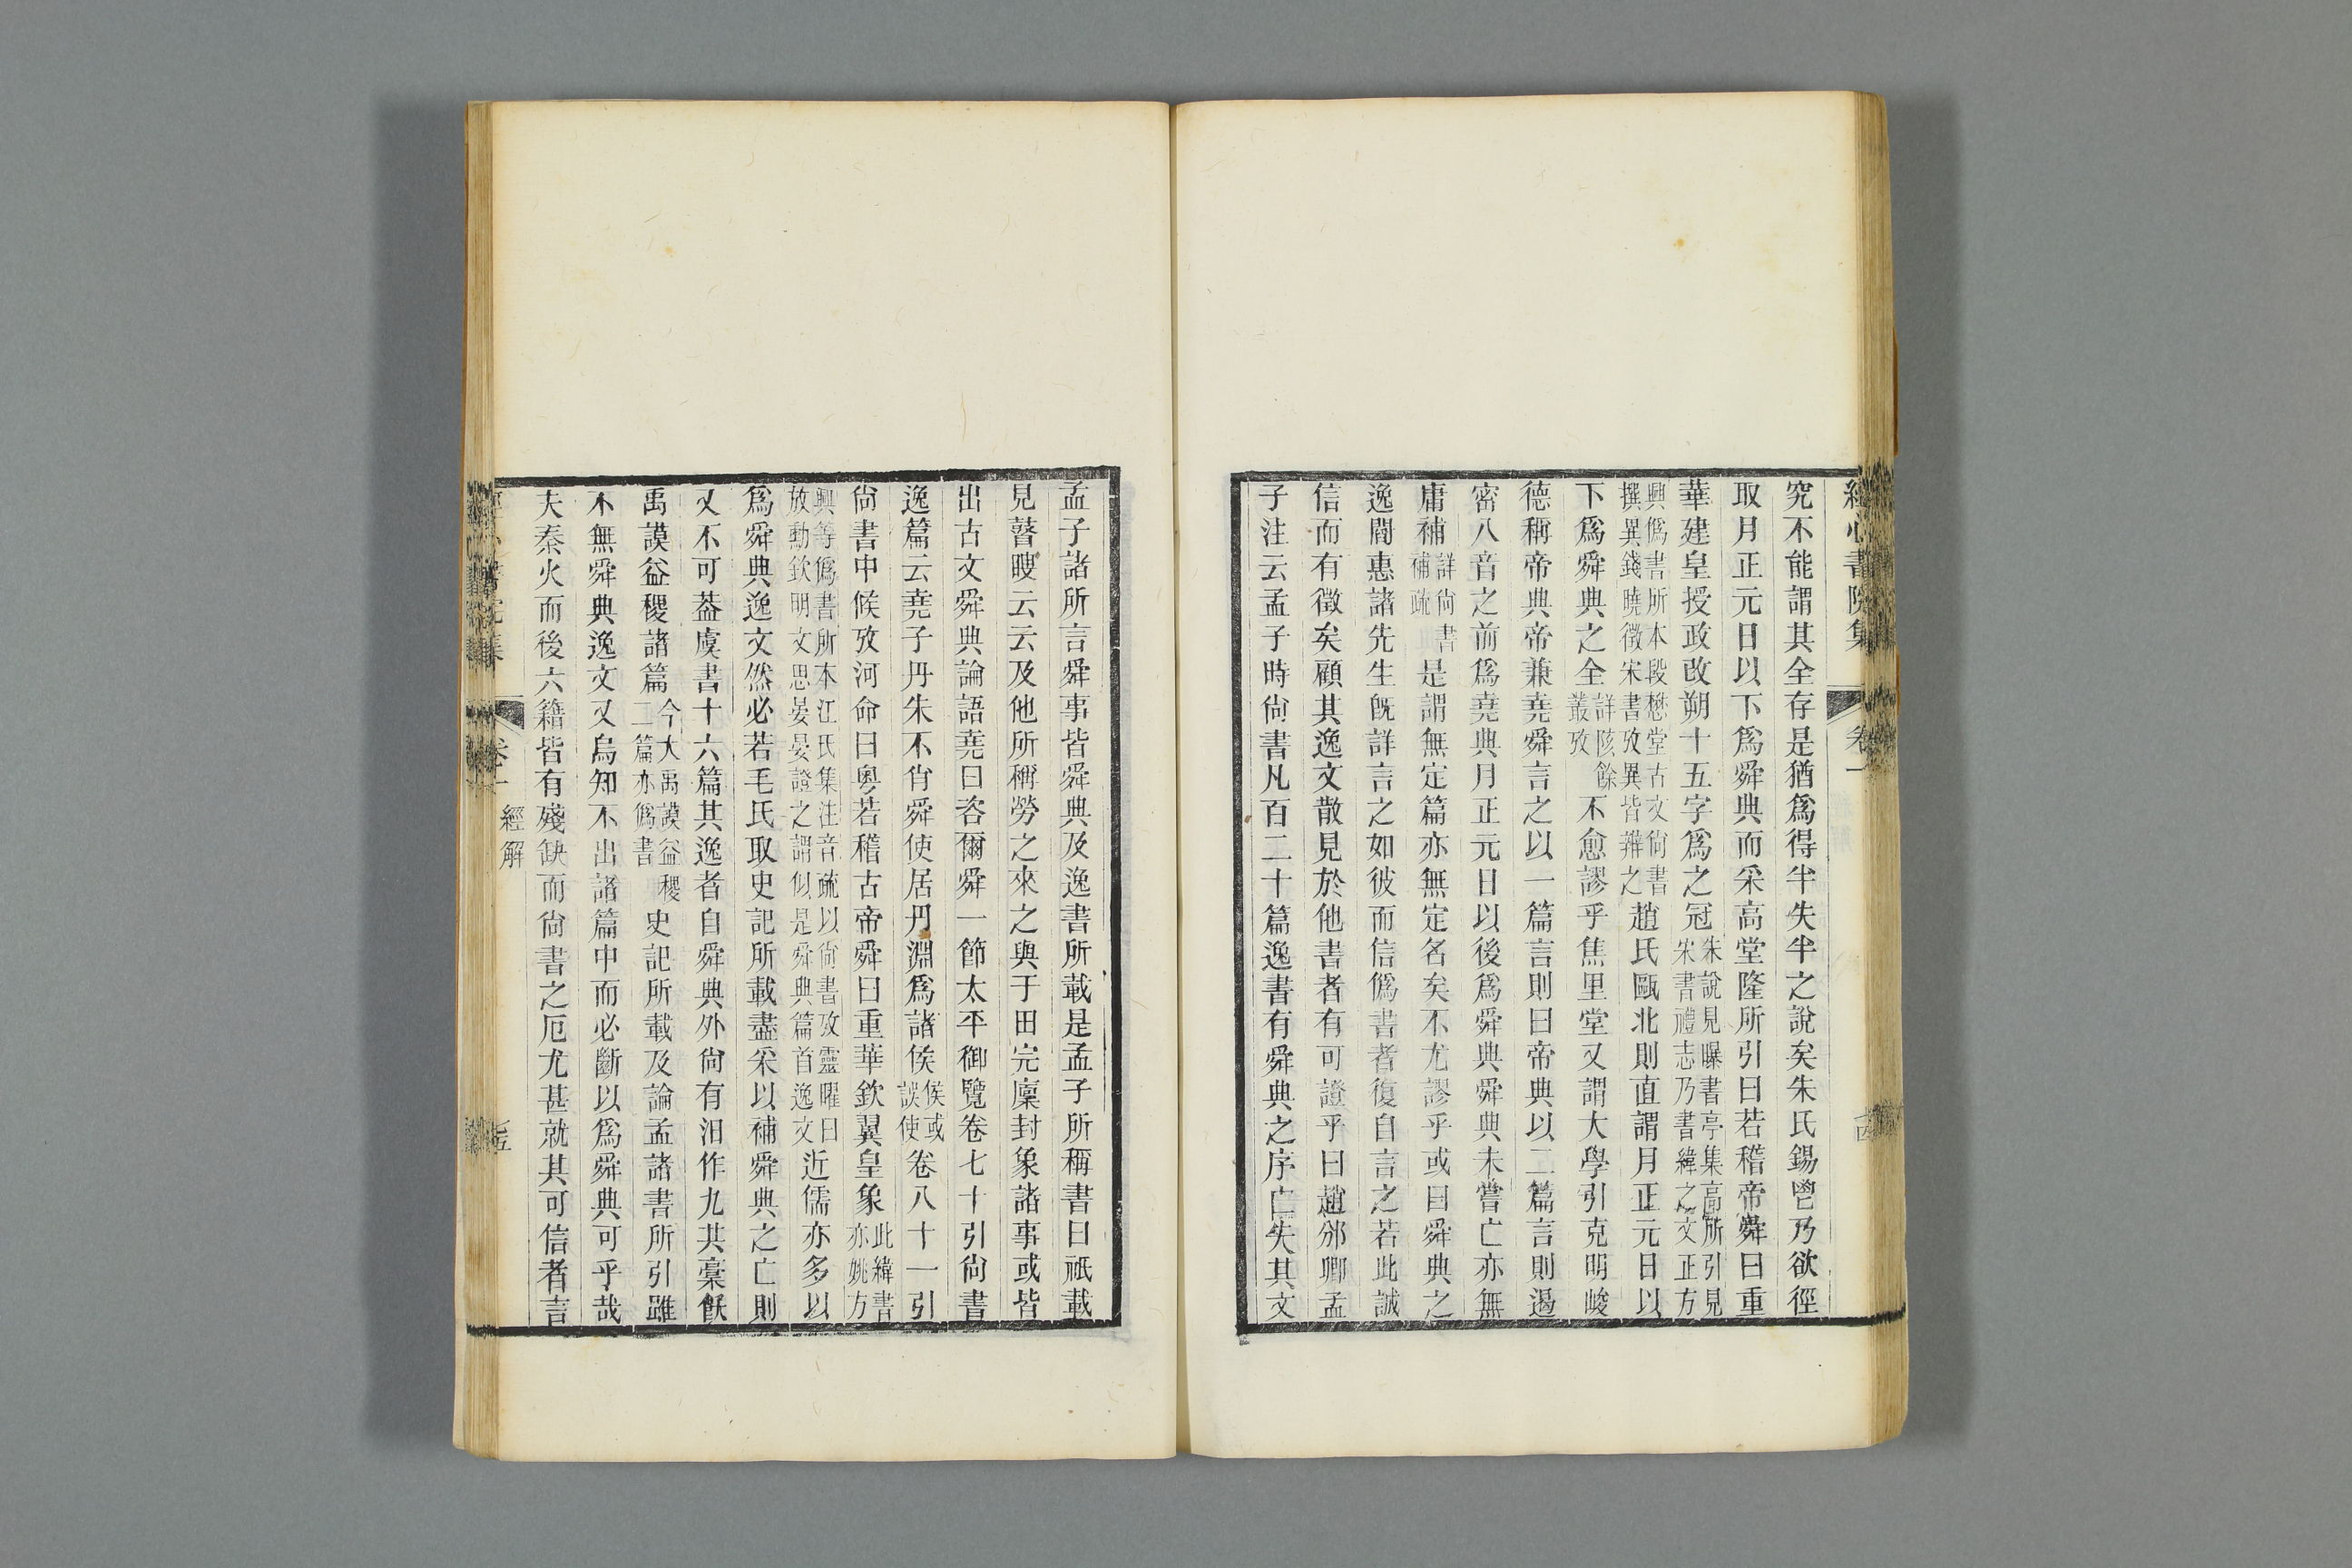 經心書院集 卷一
究不能謂其全存是猶爲得半失半之說矣朱氏錫鬯乃欲徑
取月正元日以下爲舜典而采高堂隆所引曰若稽帝舜曰重
華建皇授政改朔十五字爲之冠朱說見曝書亭集高所引見宋書禮志乃書緯之文正方
興僞書所本段懋堂古文尙書撰異錢曉徵宋書攷異皆辨之趙氏甌北則直謂月正元日以
下爲舜典之全詳陔餘叢攷不愈謬乎焦里堂又謂大學引克明峻
德稱帝典帝兼堯舜言之以一篇言則曰帝典以二篇言則遏
密八音之前爲堯典月正元日以後爲舜典舜典未嘗亡亦無
庸補詳尙書補疏是謂無定篇亦無定名矣不尤謬乎或曰舜典之
逸閻惠諸先生旣詳言之如彼而信僞書者復自言之若此誠
信而有徵矣顧其逸文散見於他書者有可證乎曰趙邠卿孟
子注云孟子時尙書凡百二十篇逸書有舜典之序亡失其文
孟子諸所言舜事皆舜典及逸書所載是孟子所稱書曰祇載
見瞽瞍云云及他所稱勞之來之與于田完廩封象諸事或皆
出古文舜典論語堯曰咨爾舜一節太平御覽卷七十引尙書
逸篇云堯子丹朱不肖舜使居丹淵爲諸侯侯或誤使卷八十一引
尙書中候攷河命曰粵若稽古帝舜曰重華欽翼皇象此緯書亦姚方
興等僞書所本江氏集注音疏以尙書攷靈曜曰放勳欽明文思晏晏證之謂似是舜典篇首逸文近儒亦多以
爲舜典逸文然必若毛氏取史記所載盡采以補舜典之亡則
又不可葢虞書十六篇其逸者自舜典外尙有汨作九共稾飫
禹謨益稷諸篇今大禹謨益稷二篇亦僞書史記所載及論孟諸書所引雖
不無舜典逸文又烏知不出諸篇中而必斷以爲舜典可乎哉
夫秦火而後六籍皆有殘缺而尙書之厄尤甚就其可信者言
卷一 經解